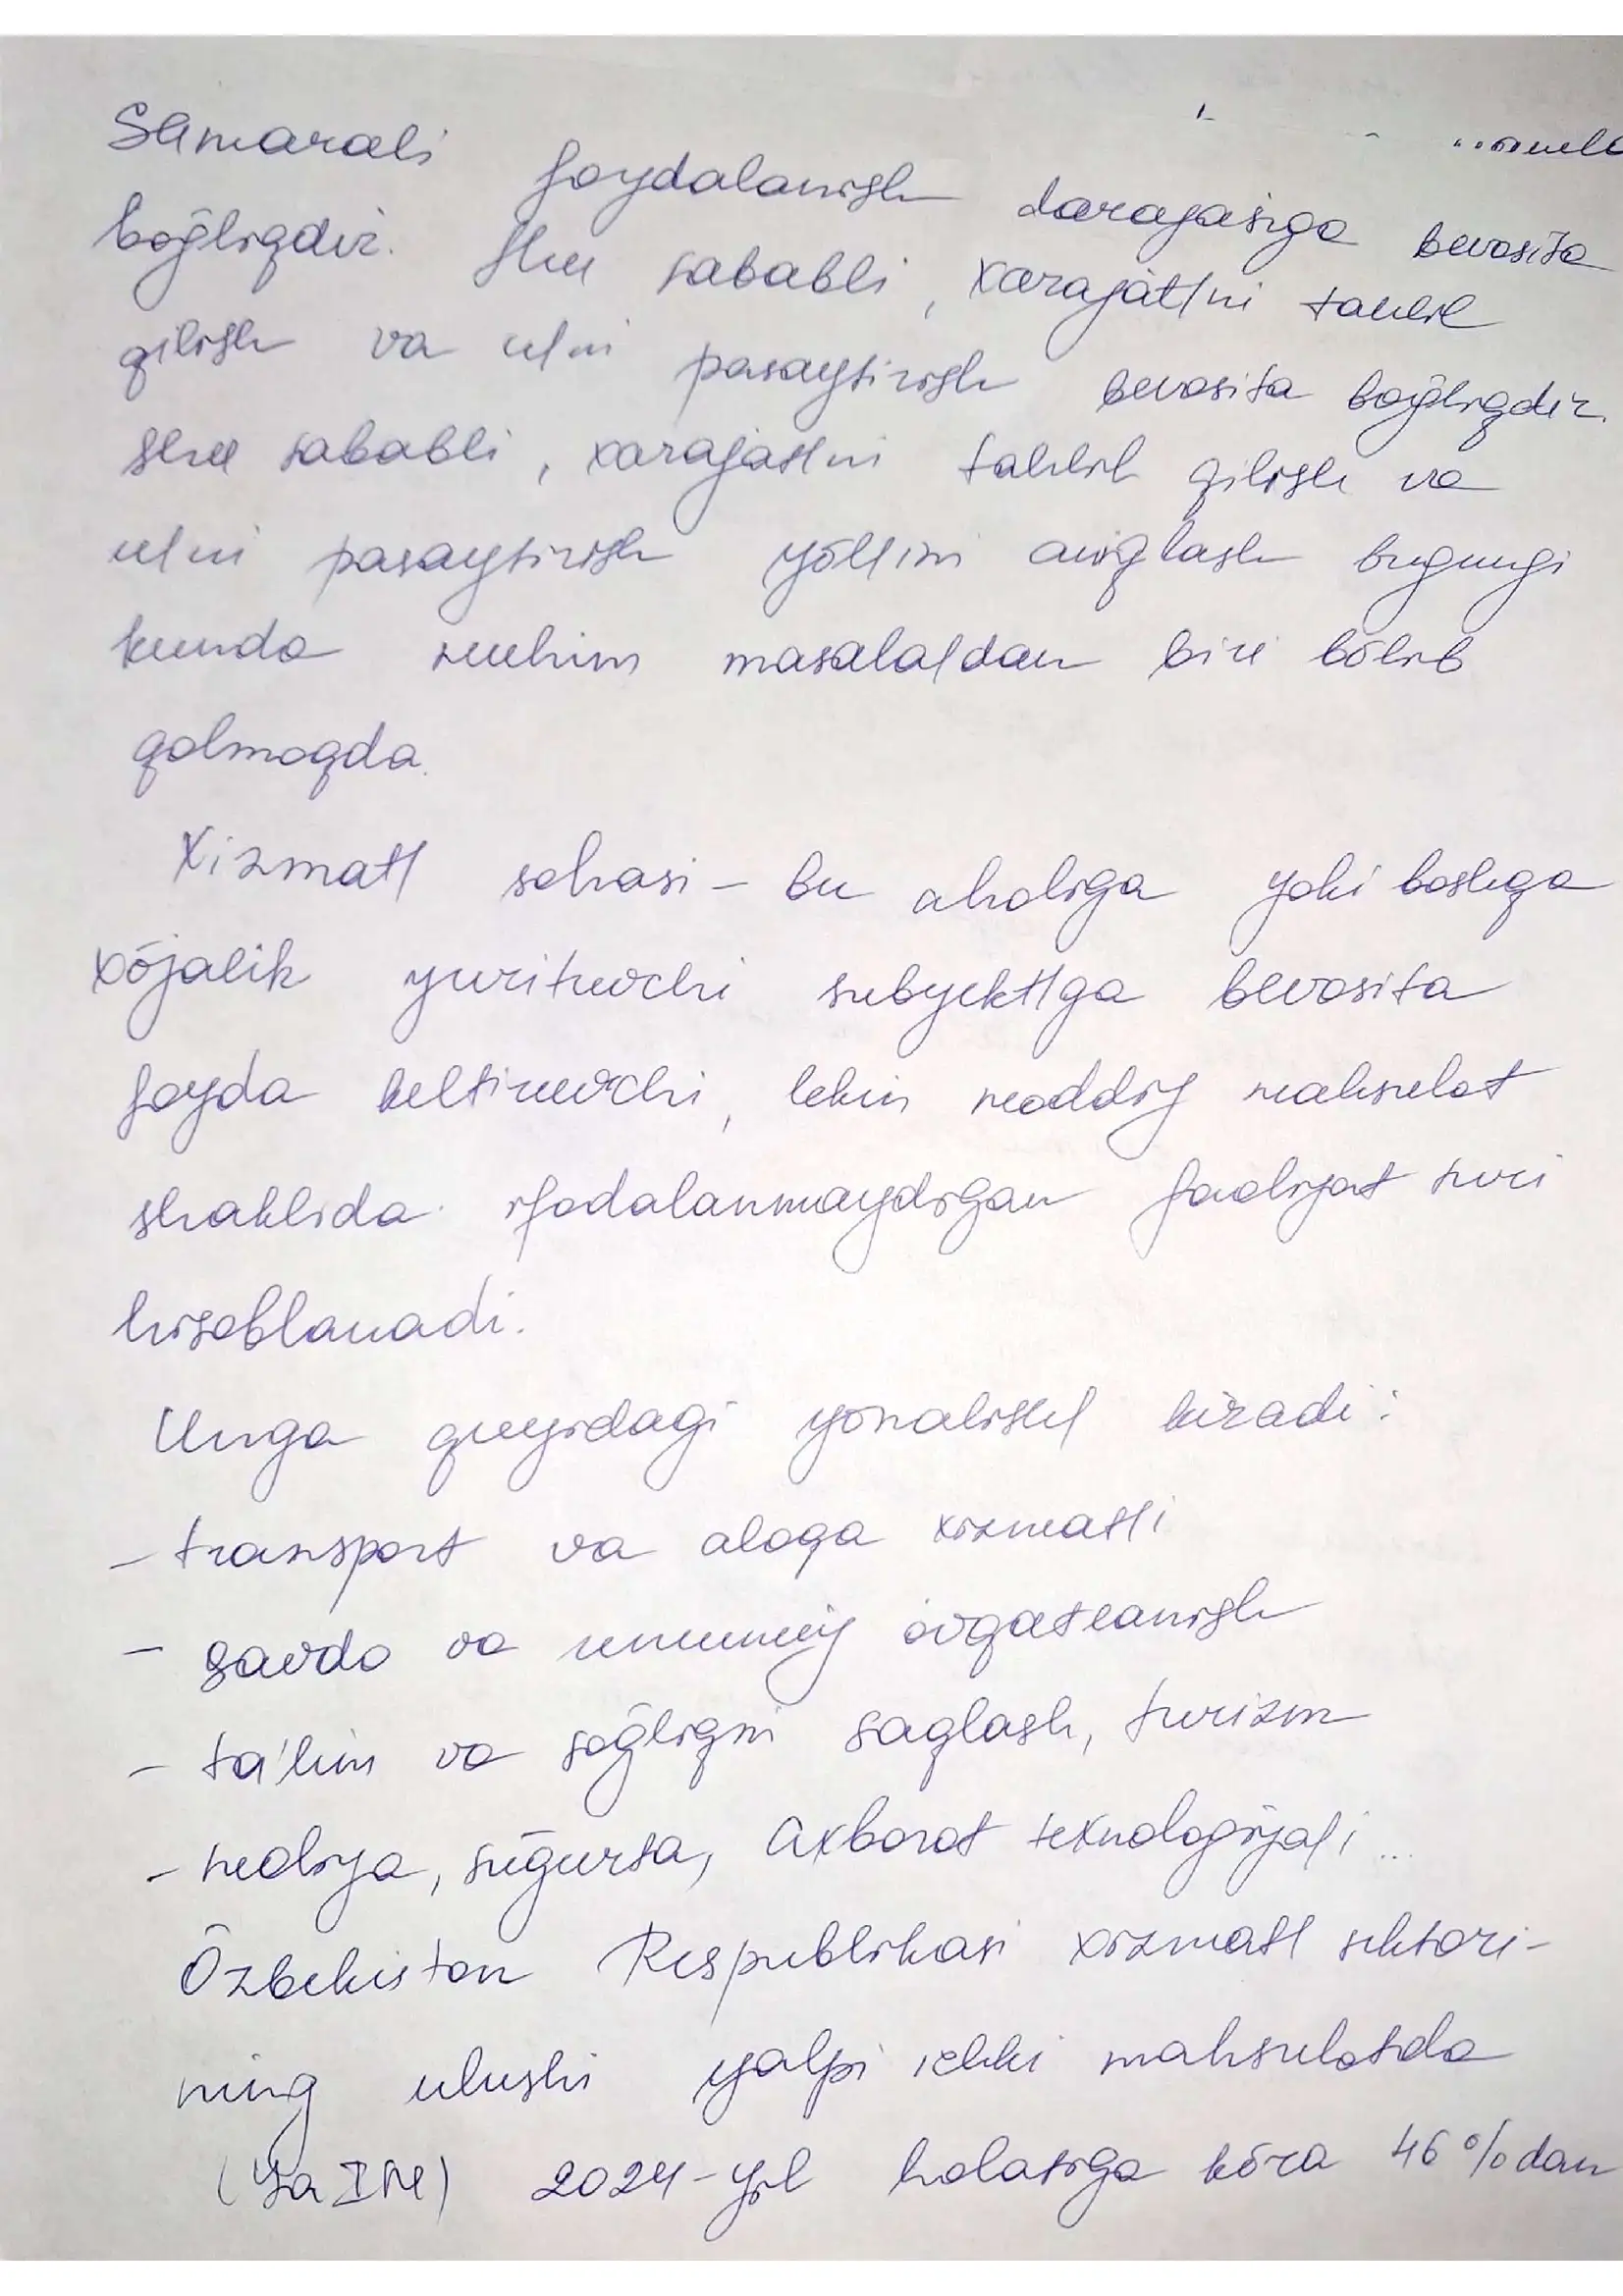 Samarali foydalanish darajasiga bevosita
bog̃liqdir. Shu sababli, xarajatlni tahlil
qilish va ulni pasaytirish bevosita bog̃liqdir.
Shu sababli, xarajatlni tahlil qilish va
ulni pasaytirish yõllini aniqlash bugungi
kunda muhim masalaldan biri bõlib
qolmoqda.
Xizmatl sohasi – bu aholiga yoki boshqa
xõjalik yurituvchi subyektlga bevosita
foyda keltiruvchi, lekin moddiy mahsulot
shaklida ifodalanmaydigan faoliyat turi
hisoblanadi.
Unga quyidagi yõnalishl kiradi:
– transport va aloqa xizmatli
– savdo va umumiy õvqatlanish
– ta'lim va sog̃liqni saqlash, turizm
– moliya, sug̃urta, axborot texnologiyali ...
Õzbekiston Respublikasi xizmatl sektori-
ning ulushi yalpi ichki mahsulotda
(YaIM) 2024-yil holatiga kõra 46 % dan